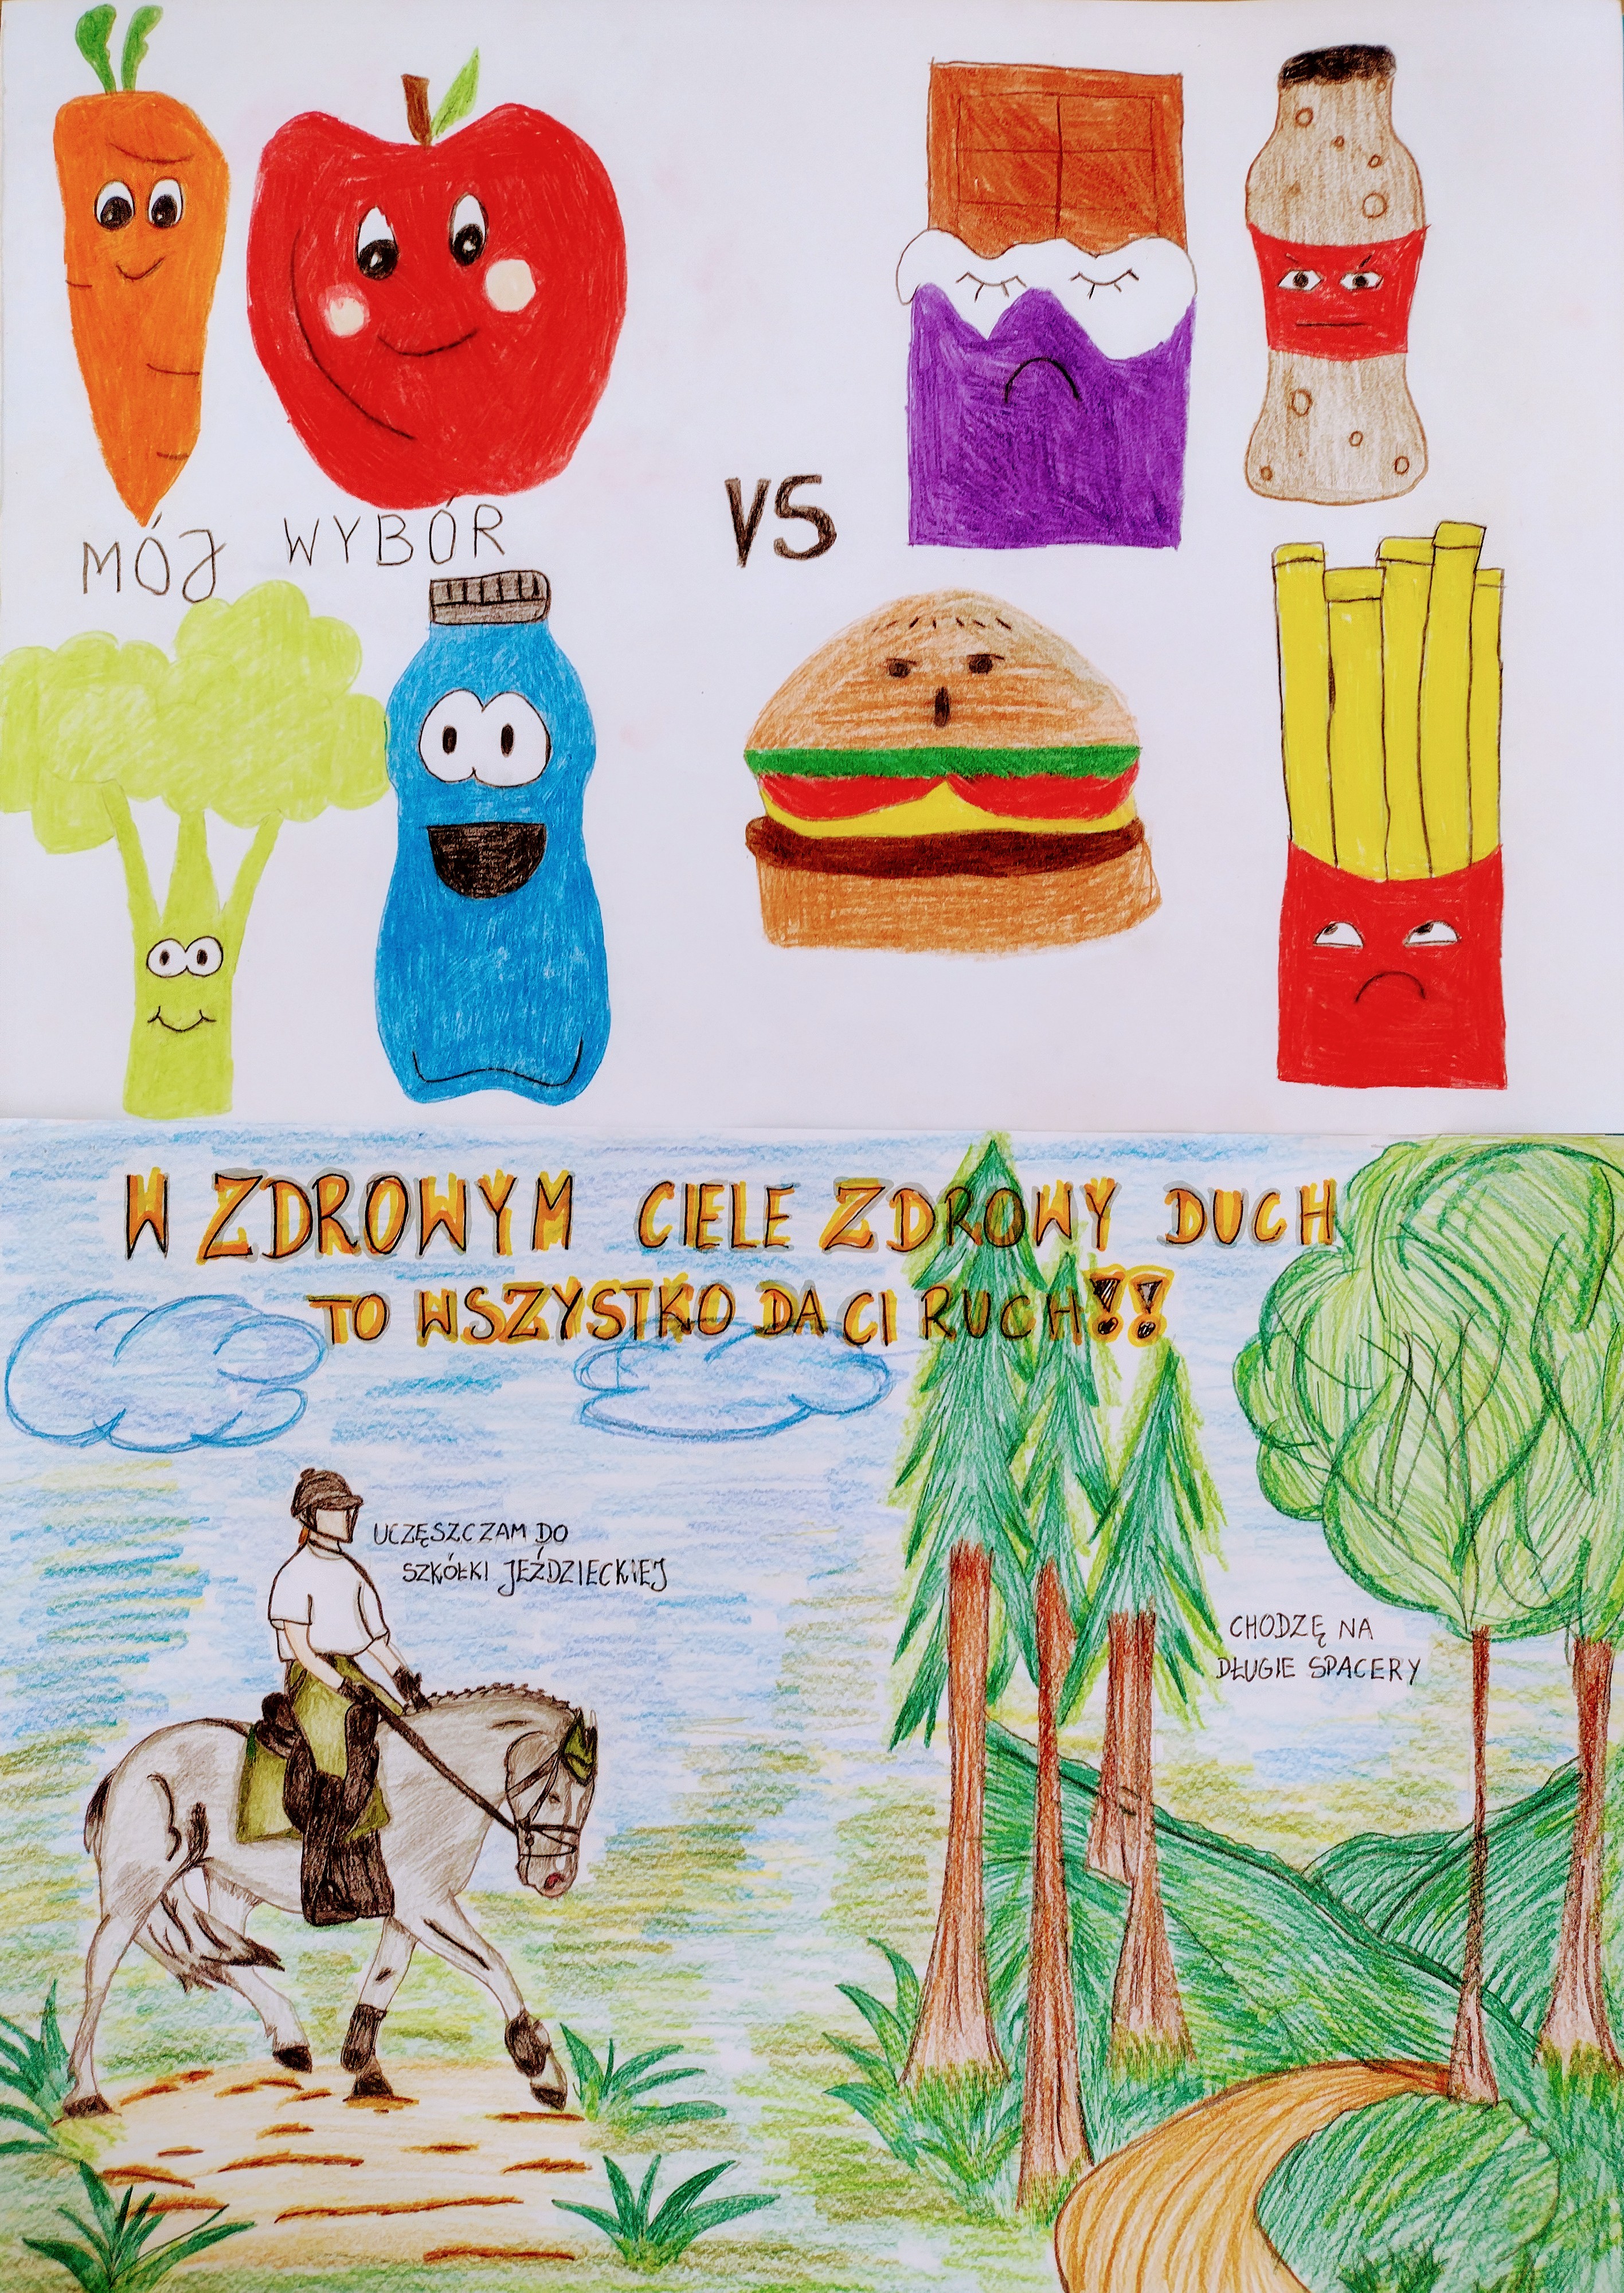 MÓJ WYBÓR
VS
W ZDROWYM CIELE ZDROWY DUCH
TO WSZYSTKO DA CI RUCH!!
UCZĘSZCZAM DO
SZKÓŁKI JEŹDZIECKIEJ
CHODZĘ NA
DŁUGIE SPACERY